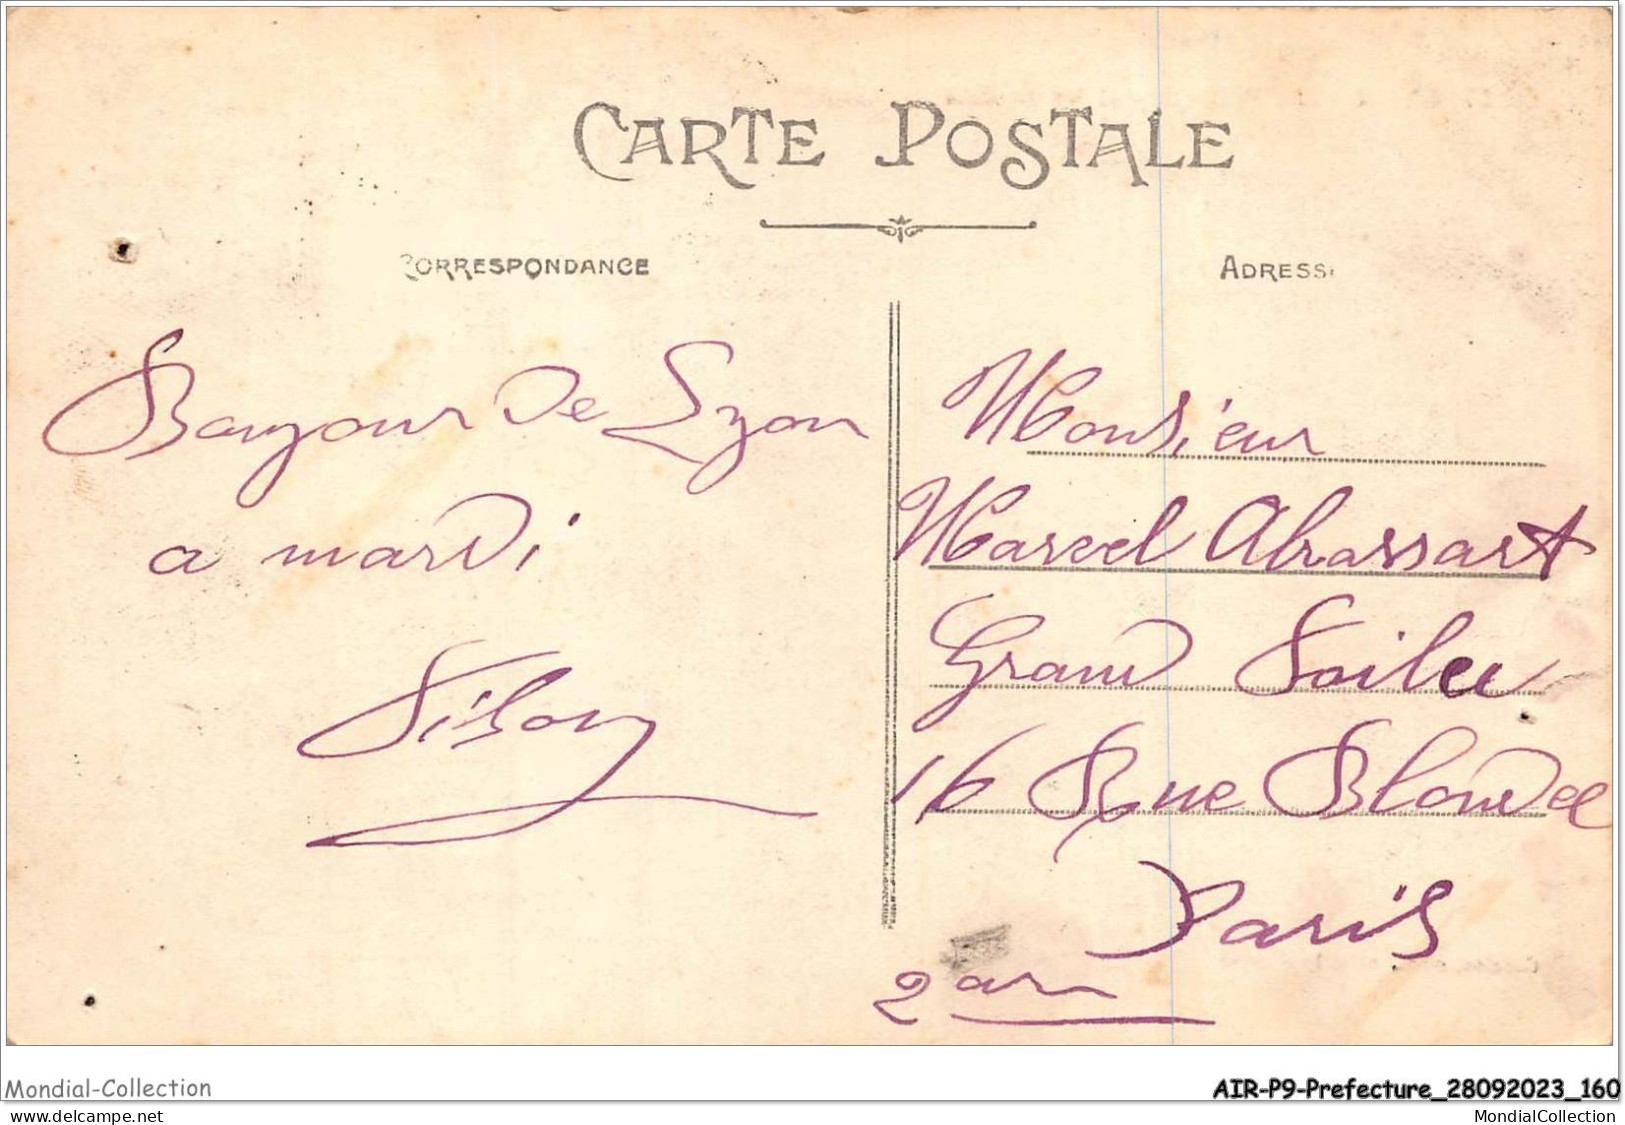 CARTE POSTALE
CORRESPONDANCE
ADRESSE
Bonjour de Lyon
a mardi
Monsieur
Marcel Abrassart
Grand
16 Rue Blondel
Paris
2 arr
Mondial-Collection
AIR-P9-Prefecture_28092023_160
www.delcampe.net
MondialCollection